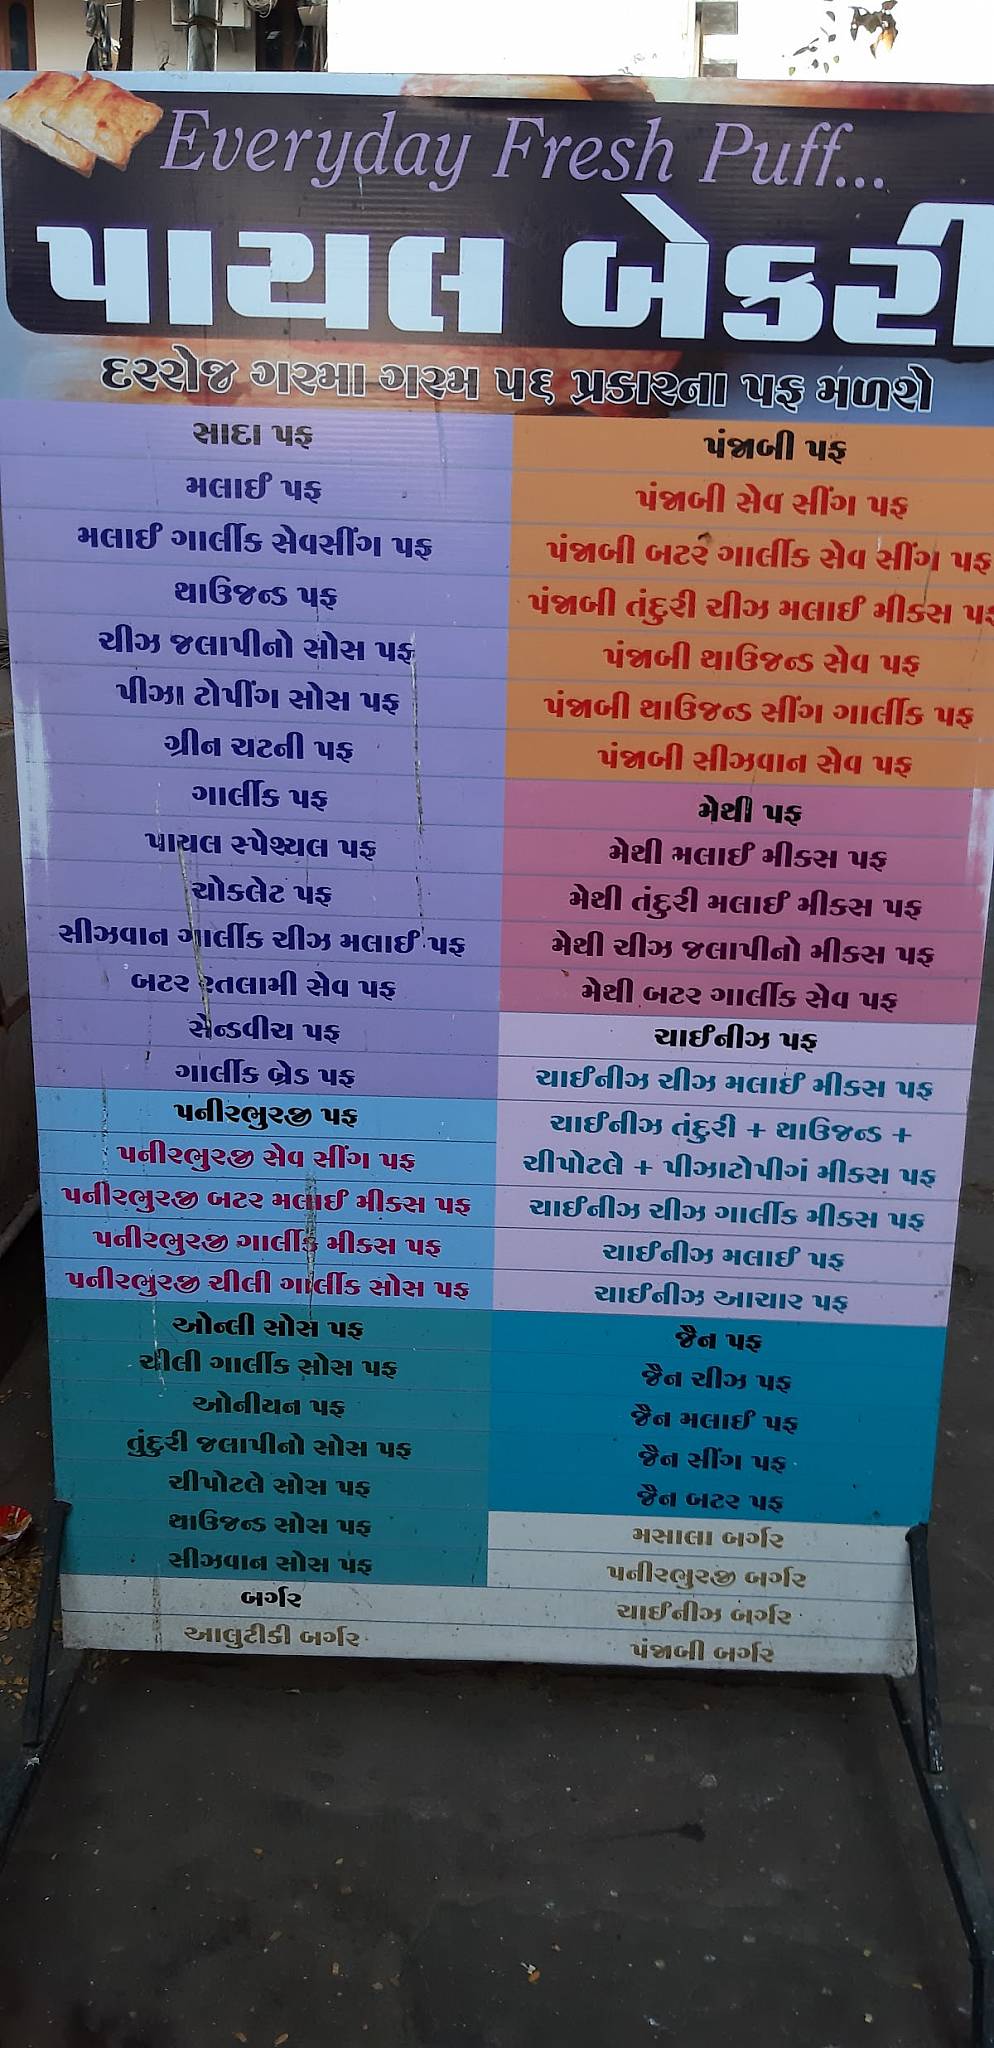 Everyday Fresh Puff...
પાયલ બેકરી
દરરોજ ગરમા ગરમ ૫૬ પ્રકારના પફ મળશે
સાદા પફ
મલાઈ પફ
મલાઈ ગાર્લીક સેવસીંગ પફ
થાઉજન્ડ પફ
ચીઝ જલાપીનો સોસ પફ
પીઝા ટોપીંગ સોસ પફ
ગ્રીન ચટની પફ
ગાર્લીક પફ
પાયલ સ્પેશ્યલ પફ
ચોકલેટ પફ
સીઝવાન ગાર્લીક ચીઝ મલાઈ પફ
બટર રતલામી સેવ પફ
સેન્ડવીચ પફ
ગાર્લીક બ્રેડ પફ
પનીરભુરજી પફ
પનીરભુરજી સેવ સીંગ પફ
પનીરભુરજી બટર મલાઈ મીક્સ પફ
પનીરભુરજી ગાર્લીક મીક્સ પફ
પનીરભુરજી ચીલી ગાર્લીક સોસ પફ
ઓન્લી સોસ પફ
ચીલી ગાર્લીક સોસ પફ
ઓનીયન પફ
તુંદુરી જલાપીનો સોસ પફ
ચીપોટલે સોસ પફ
થાઉજન્ડ સોસ પફ
સીઝવાન સોસ પફ
બર્ગર
આલુટીકી બર્ગર
પંજાબી પફ
પંજાબી સેવ સીંગ પફ
પંજાબી બટર ગાર્લીક સેવ સીંગ પફ
પંજાબી તંદુરી ચીઝ મલાઈ મીક્સ પફ
પંજાબી થાઉજન્ડ સેવ પફ
પંજાબી થાઉજન્ડ સીંગ ગાર્લીક પફ
પંજાબી સીઝવાન સેવ પફ
મેથી પફ
મેથી મલાઈ મીક્સ પફ
મેથી તંદુરી મલાઈ મીક્સ પફ
મેથી ચીઝ જલાપીનો મીક્સ પફ
મેથી બટર ગાર્લીક સેવ પફ
ચાઈનીઝ પફ
ચાઈનીઝ ચીઝ મલાઈ મીક્સ પફ
ચાઈનીઝ તંદુરી + થાઉજન્ડ +
ચીપોટલે + પીઝાટોપીગં મીક્સ પફ
ચાઈનીઝ ચીઝ ગાર્લીક મીક્સ પફ
ચાઈનીઝ મલાઈ પફ
ચાઈનીઝ આચાર પફ
જૈન પફ
જૈન ચીઝ પફ
જૈન મલાઈ પફ
જૈન સીંગ પફ
જૈન બટર પફ
મસાલા બર્ગર
પનીરભુરજી બર્ગર
ચાઈનીઝ બર્ગર
પંજાબી બર્ગર